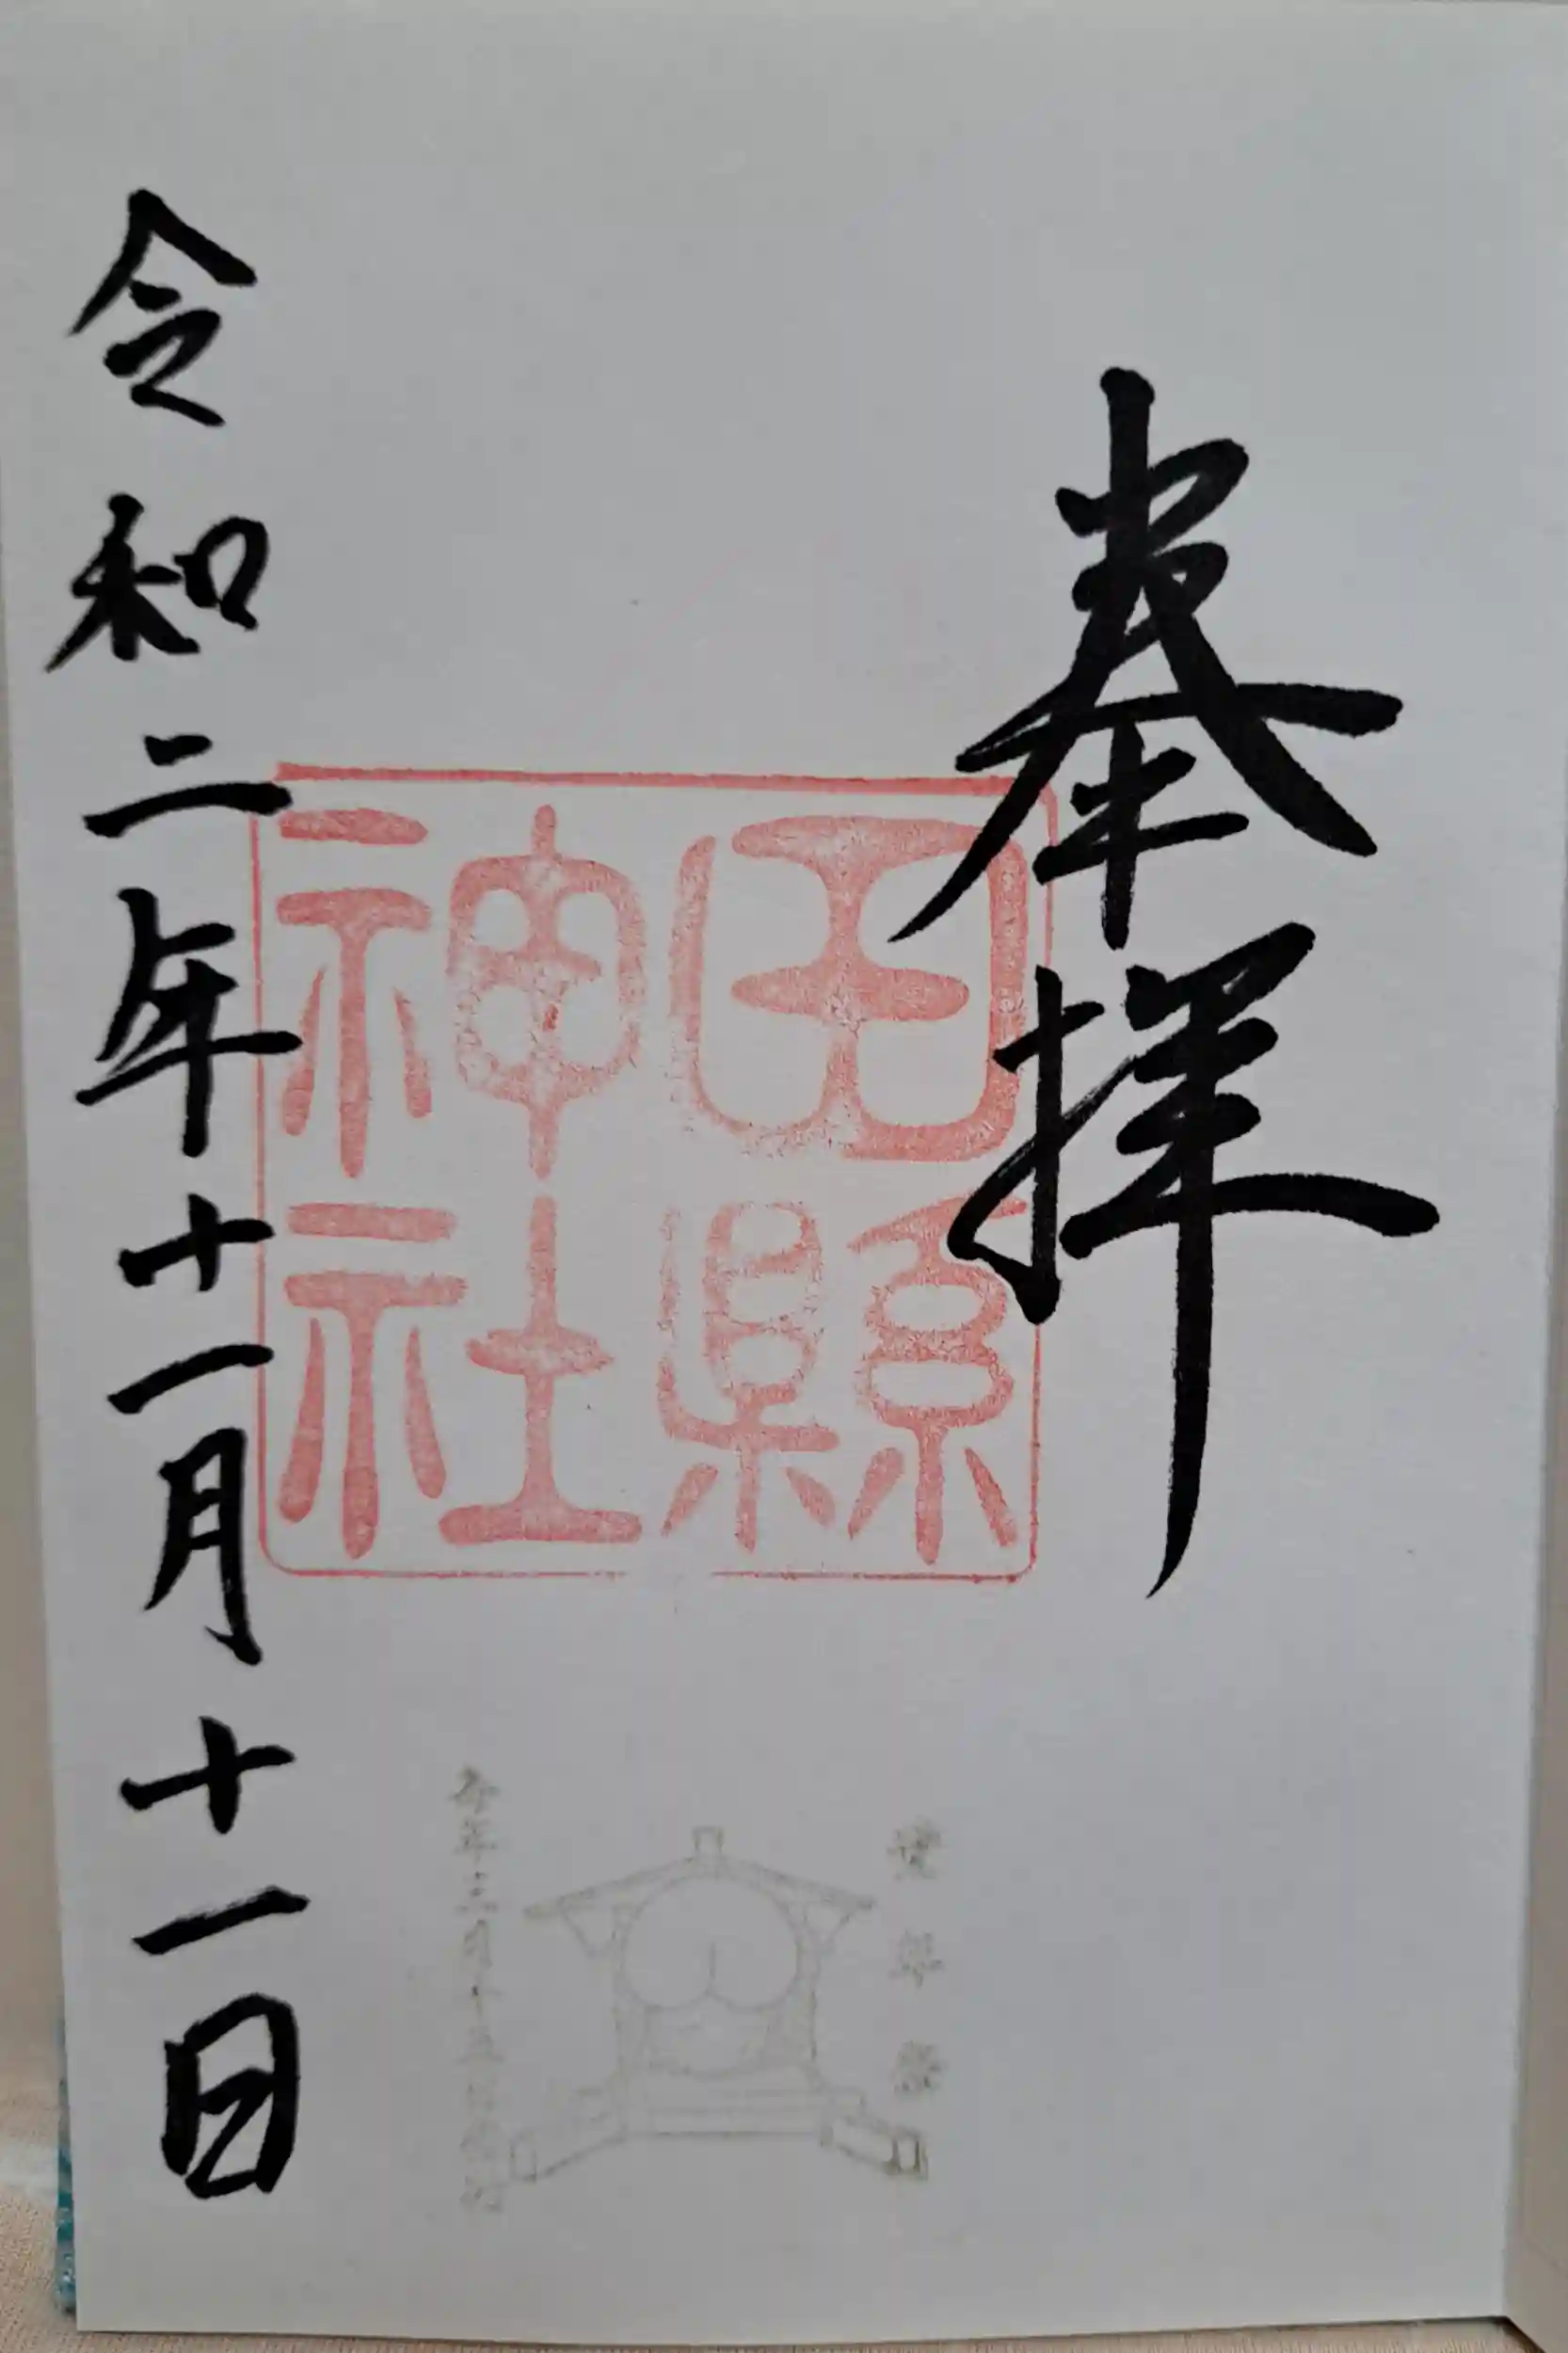 奉拝
田縣
神社
令和二年十一月十一日
豊年祭